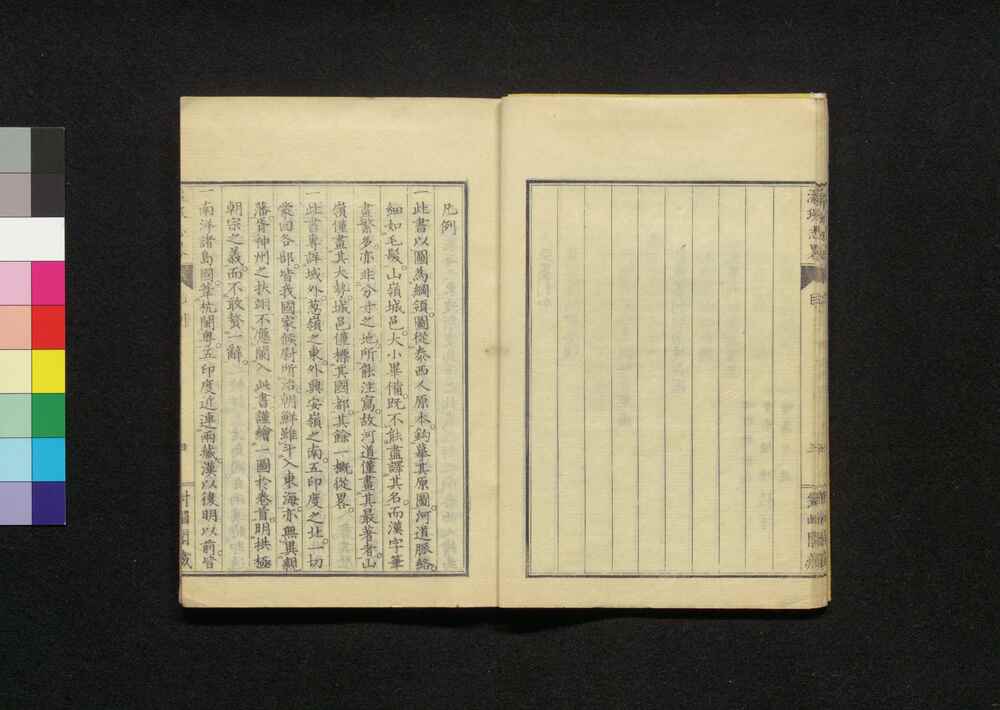 瀛環志畧
目
凡例
一此書以圖爲綱領。圖從泰西人原本。鈎摹其原圖。河道脈絡。
細如毛髮。山嶺城邑。大小畢備。旣不能盡譯其名。而漢字筆
畫繁多。亦非分寸之地。所能注寫。故河道僅畫其最著者。山
嶺僅畫其大勢。城邑僅標其國都。其餘一槪從畧。
一此書專詳域外。葱嶺之東。外興安嶺之南。五印度之北。一切
蒙回各部。皆我國家候尉所治。朝鮮雖斗入東海。亦無異親
藩。胥神州之扶翊。不應闌入此書。謹繪一圖於卷首。明拱極
朝宗之義。而不敢贅一辭。
一南洋諸島國。葦杭閩粤。五印度近連兩藏。漢以後。明以前。皆